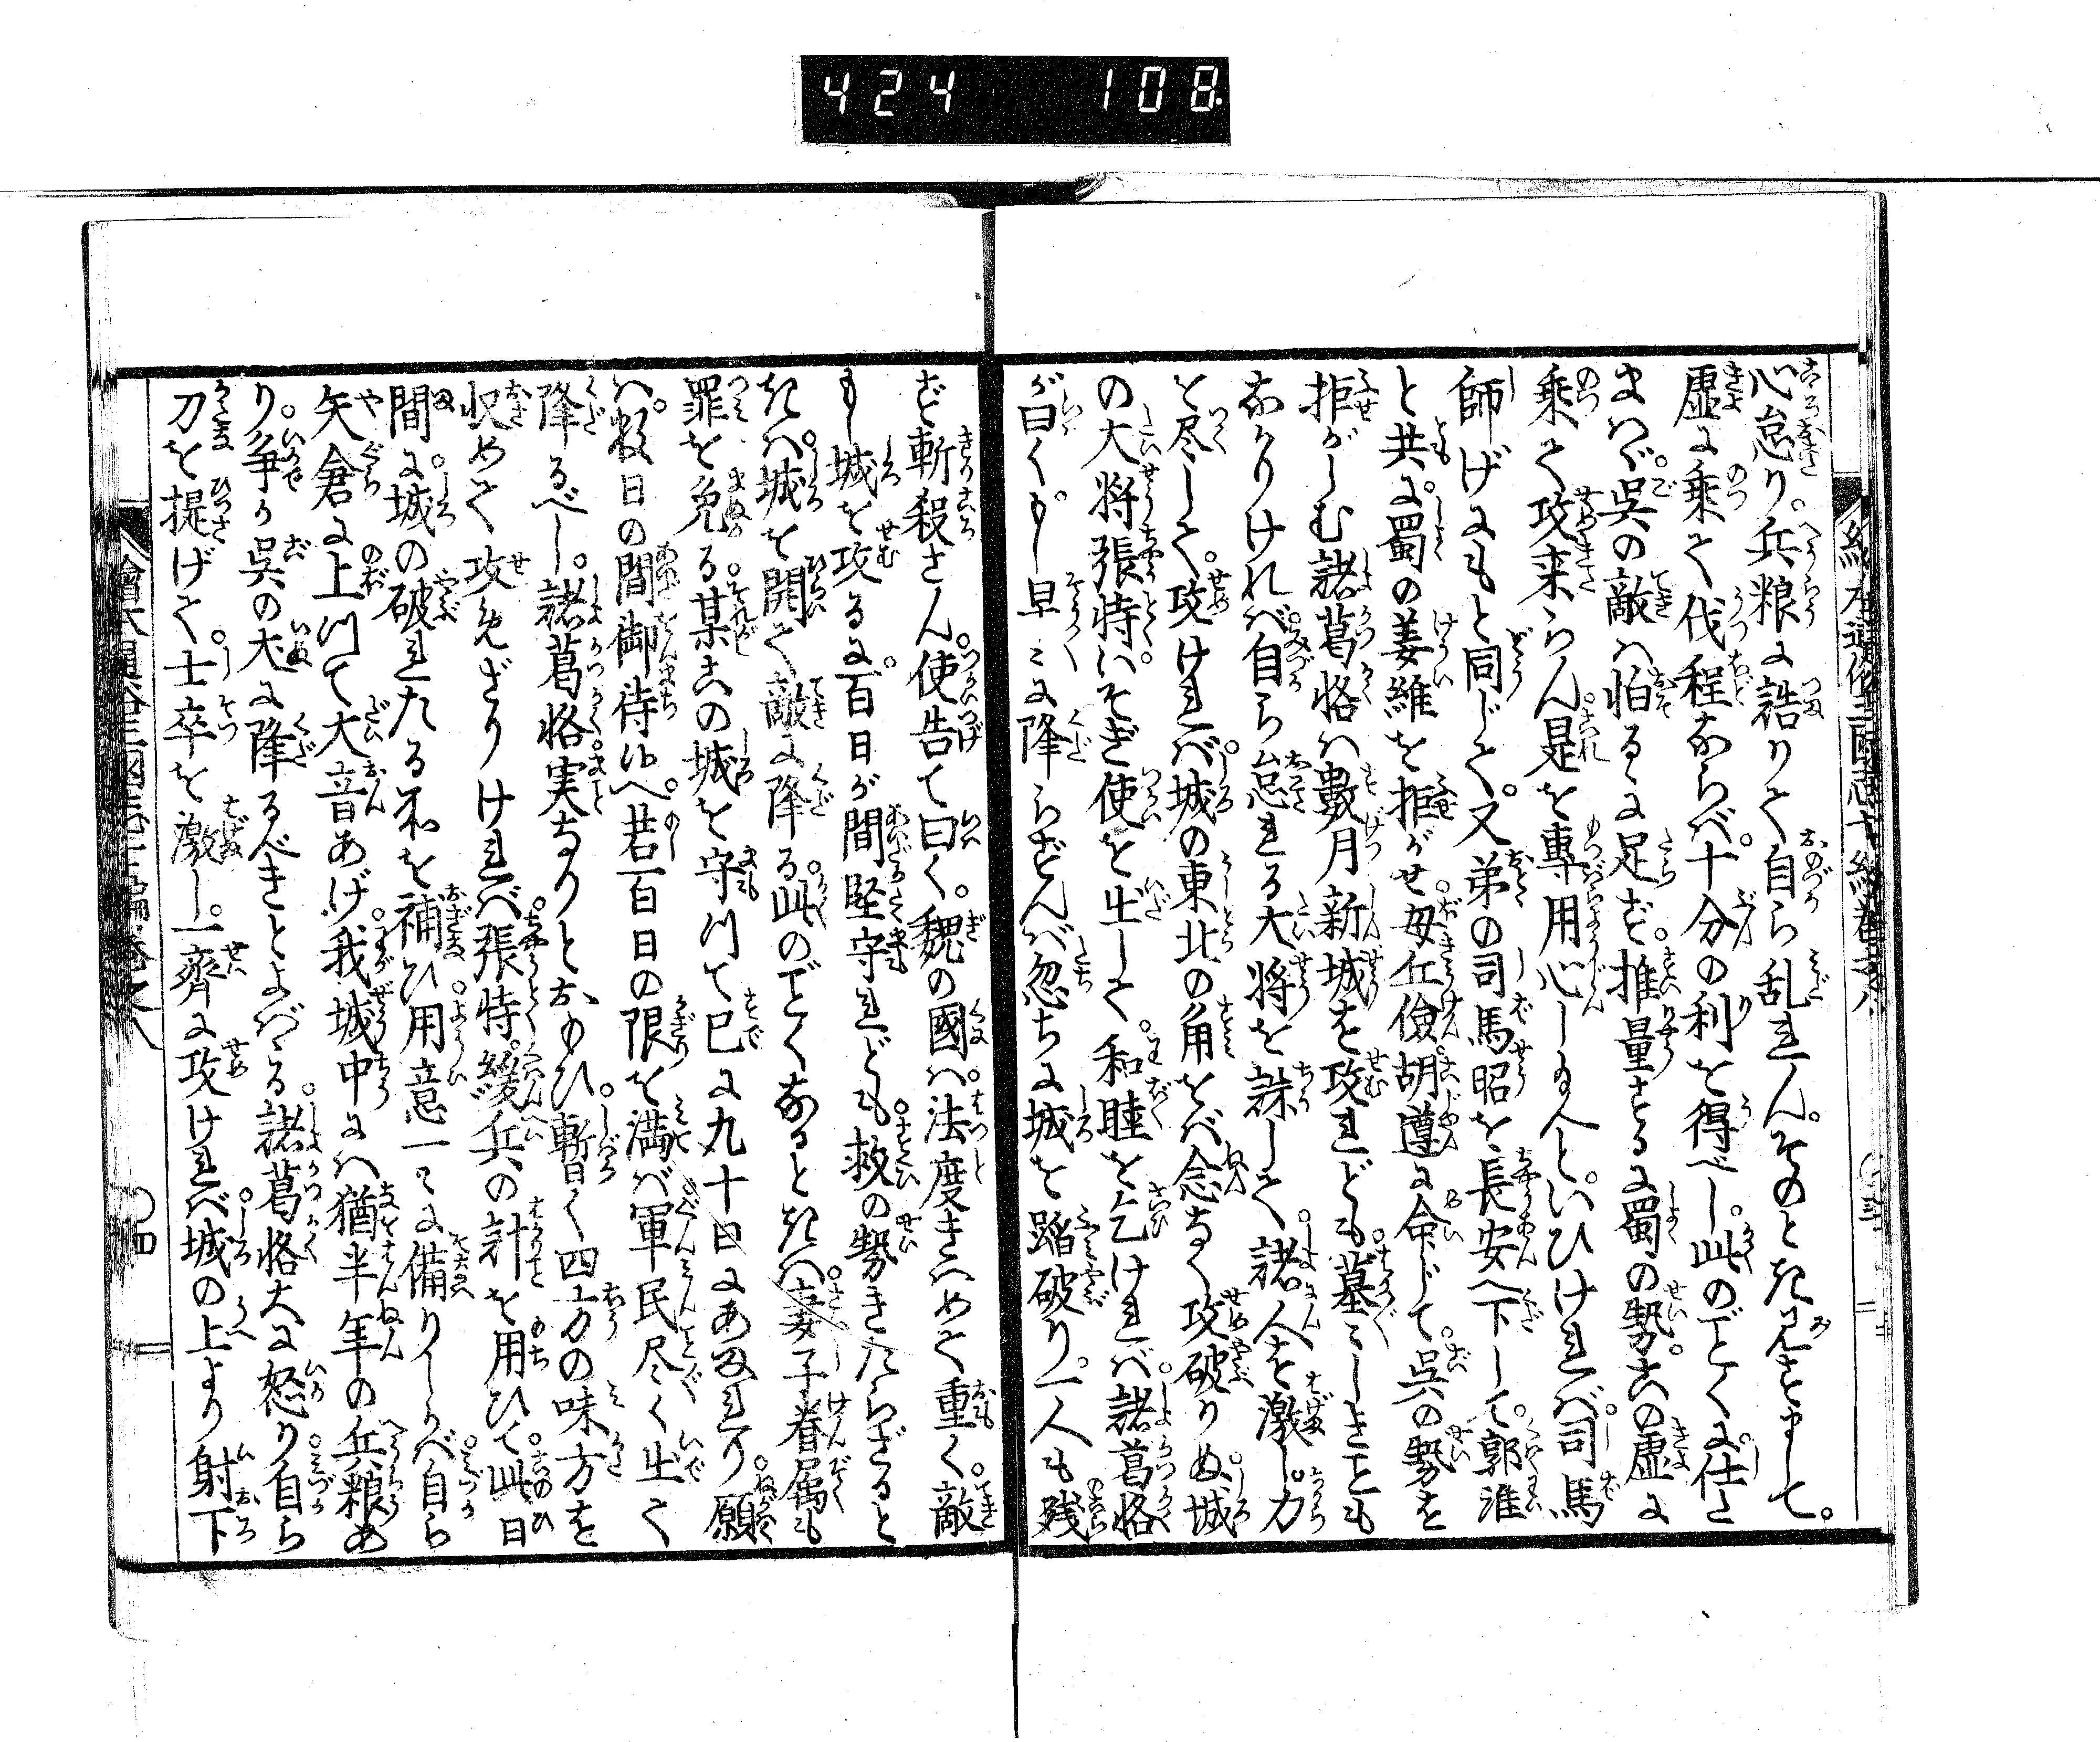 424 108
心怠り。兵粮に詰りて自ら乱れん。そのときを見すまして。
虚に乗て伐程ならバ。十分の利を得べし。此のごとくに仕た
まハヾ。呉の敵ハ怕るゝに足ず。推量するに蜀の勢。この虚に
乗て攻来らん。是を專用心し給へと。いひけれバ。司馬
師げにもと同じて。又弟の司馬昭を。長安へ下して。郭淮
と共に。蜀の姜維を拒がせ。毋丘儉。胡遵に命じて。呉の勢を
拒がしむ諸葛恪ハ數月新城を攻れども。墓〻しきことも
なかりけれバ。自ら怠れる大将を誅して。諸人を激し。力
を尽して。攻けれバ。城の東北の角をバ念なく攻破りぬ。城
の大将張特。いそぎ使を出して。和睦を乞けれバ。諸葛恪
が曰く。もし早〻に降らずんバ忽ちに城を踏破り。一人も残
ず斬殺さん。使告て曰く。魏の國ハ。法度きハめて重く。敵
もし城を攻るに。百日が間堅守れども。救の勢きたらざると
きハ。城を開て敵に降る。此のごとくなるときハ。妻子眷属も
罪を免る。某この城を守つて已に九十日にあまれり。願
ハ。数日の間御待候へ。若百日の限を満バ。軍民尽く出て
降るべし。諸葛恪。実なりとおもひ。暫く四方の味方を
収めて攻ざりけれバ。張特。緩兵の計を用ひて。此日
間に。城の破れたる所を補ひ。用意一〻に備りしかバ。自ら
矢倉に上つて大音あげ。我城中にハ猶半年の兵粮あ
り。争か呉の犬に降るべきとよバゝる。諸葛恪大に怒り。自ら
刀を提げて。士卒を激し。一齊に攻けれバ。城の上より射下